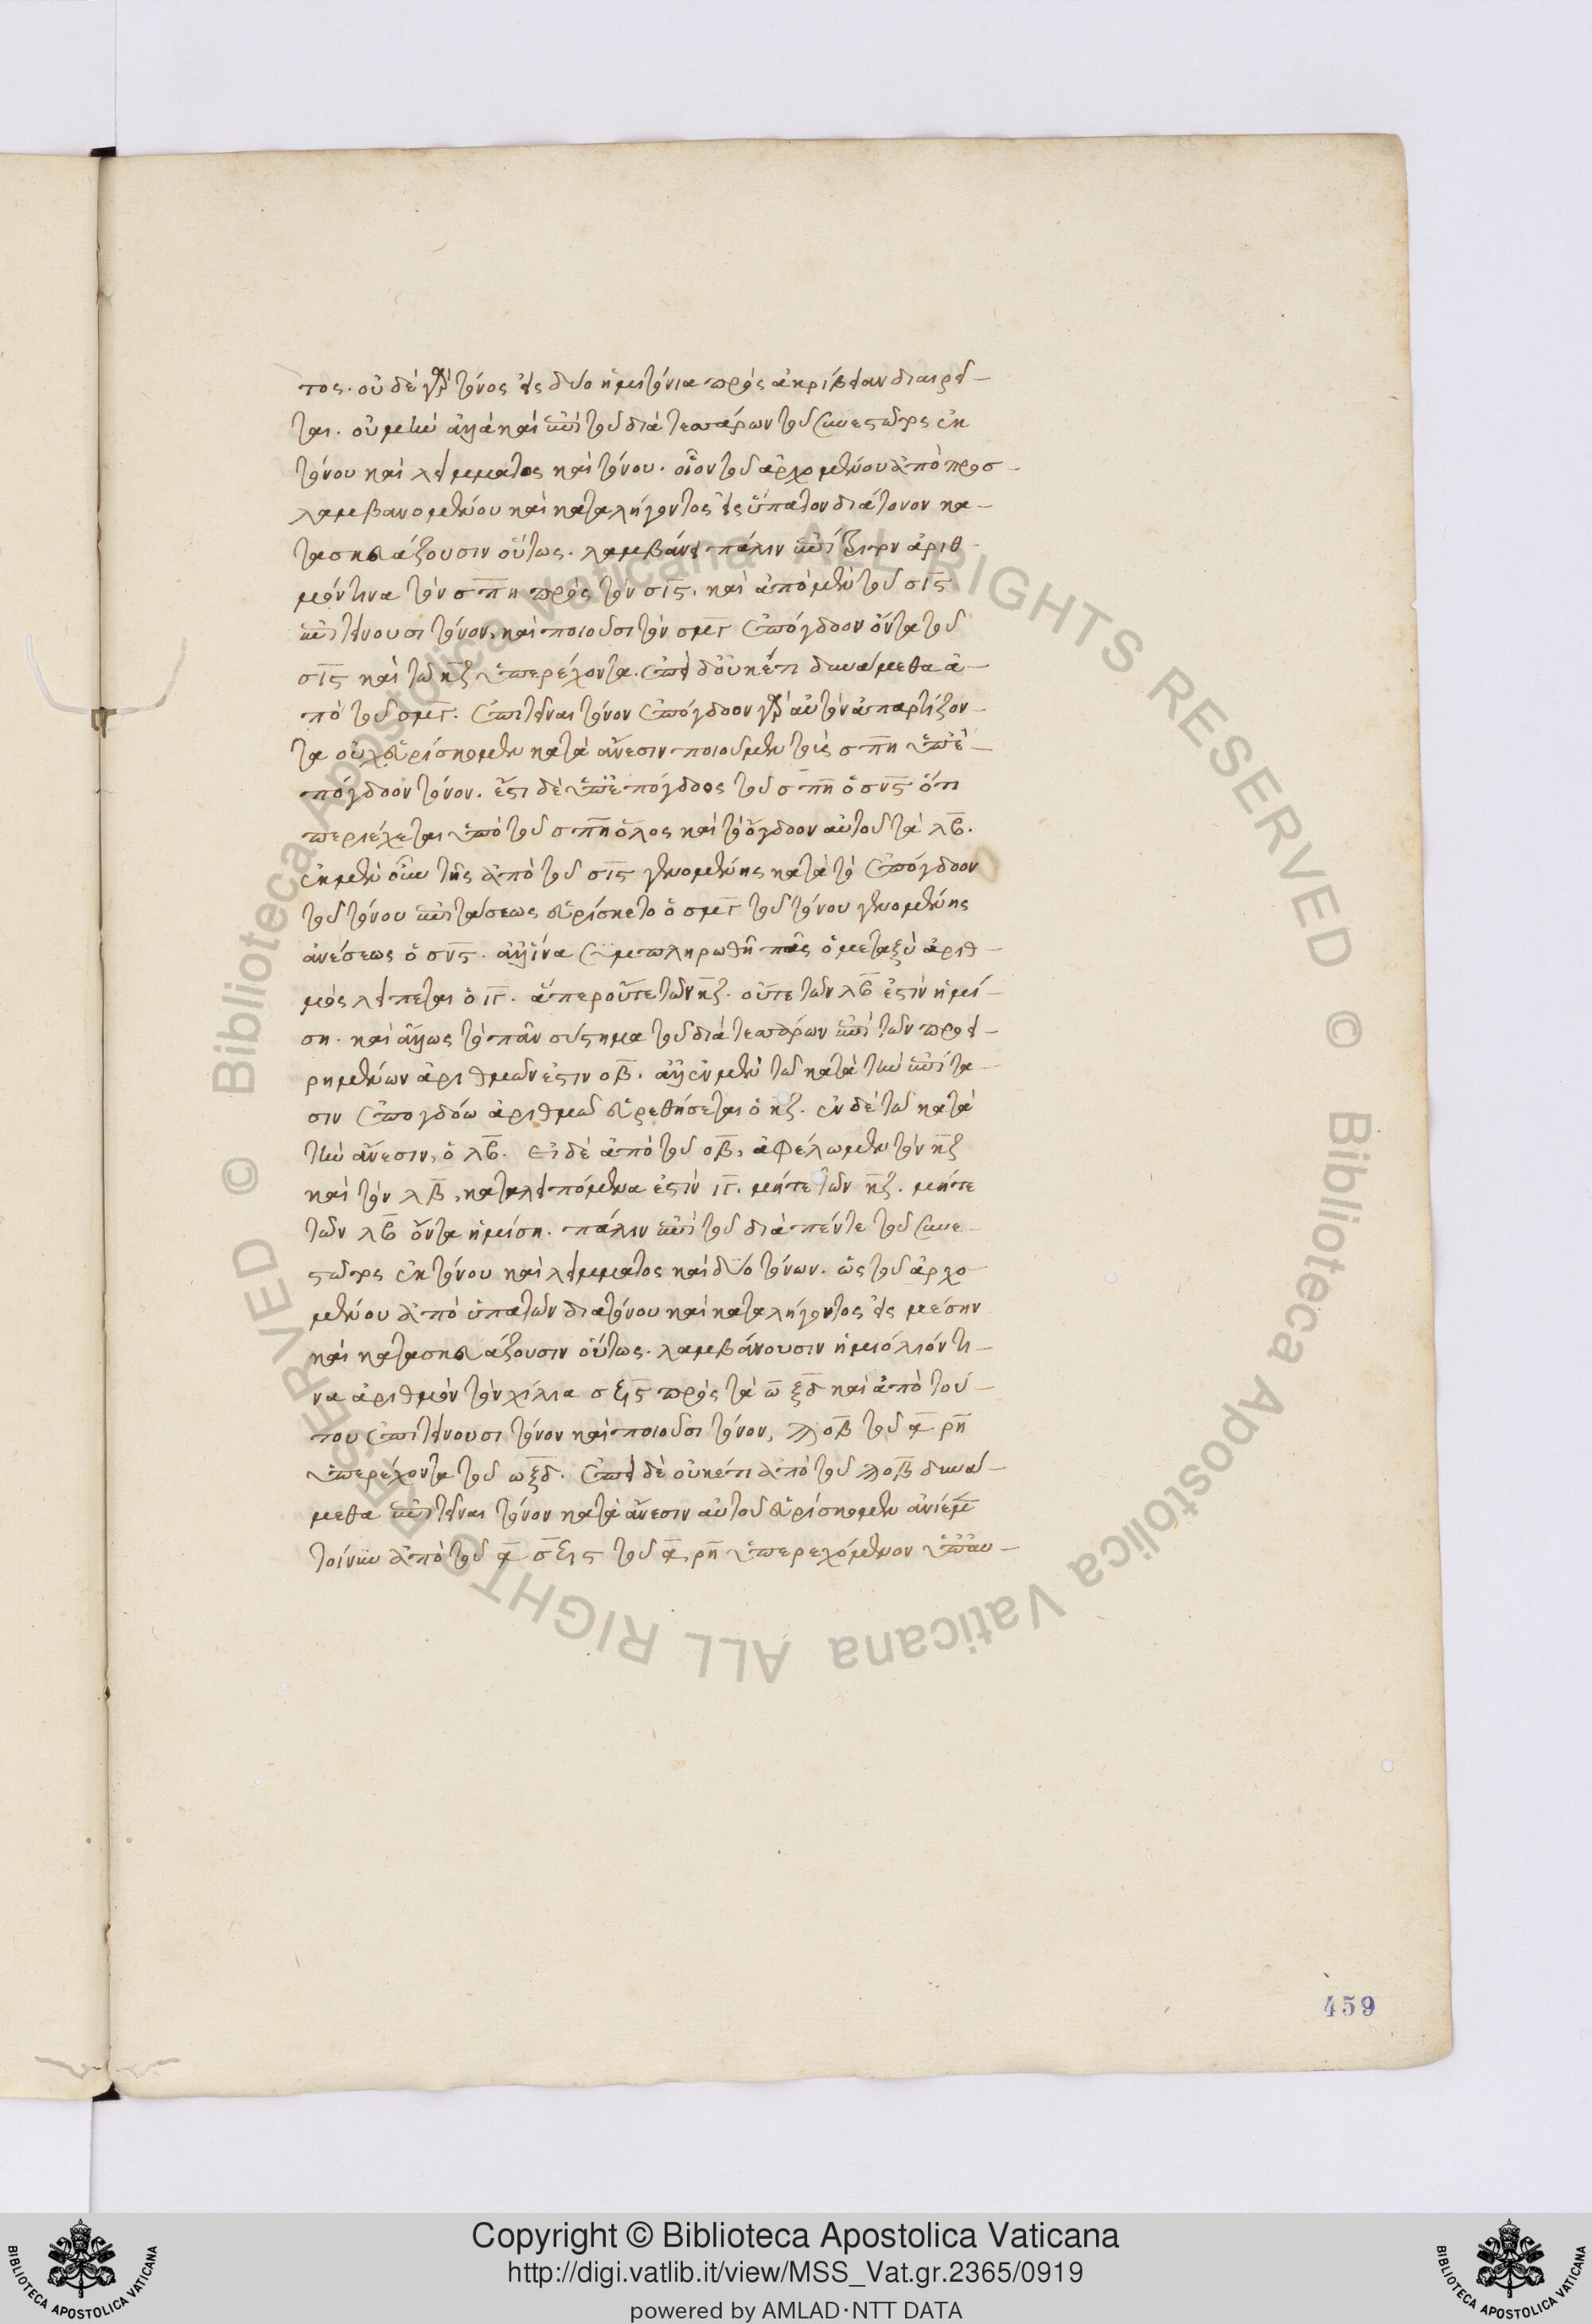 τος. οὐδὲ γὰρ τόνος εἰς δύο ἡμιτόνια πρὸς ἀκρίβειαν διαιρεῖ-
ται. οὐ μὴν ἀλλὰ καὶ ἐπὶ τοῦ διὰ τεσσάρων τοῦ συνεστῶτος ἐκ
τόνου καὶ λείμματος καὶ τόνου. οἷον τοῦ ἀρχομένου ἀπὸ προσ-
λαμβανομένου καὶ καταλήγοντος εἰς ὑπάτον διάτονον κα-
τασκευάζουσιν οὕτως. λαμβάνει πάλιν ἐπίτριτον ἀριθ-
μόν τινα τὸν σπη πρὸς τὸν σις. καὶ ἀπὸ μὲν τοῦ σις
ἐπιτείνουσι τόνον, καὶ ποιοῦσι τὸν σμγ ἐπόγδοον ὄντα τοῦ
σις καὶ τῶ κζ ὑπερέχοντα. ἐπεὶ δ' οὐκέτι δυνάμεθα ἀ-
πὸ τοῦ σμγ. ἐπιτεῖναι τόνον ἐπόγδοον γὰρ αὐτὸν ἀπαρτίζον-
τα οὐχ εὑρίσκομεν κατὰ ἄνεσιν ποιοῦμεν τοῖς σπη ὑπε-
πόγδοον τόνον. ἔστι δὲ ὑπεπόγδοος τοῦ σπη ὁ σνς ὅτι
περιέχεται ὑπὸ τοῦ σπη ὅλος καὶ τὸ ὄγδοον αὐτοῦ τὰ λβ.
ἐκ μὲν οὖν τῆς ἀπὸ τοῦ σις γενομένης κατὰ τὸ ἐπόγδοον
τοῦ τόνου ἐπιτάσεως εὑρίσκετο ὁ σμγ τοῦ τόνου γενομένης
ἀνέσεως ὁ σνς. ἀλλ' ἵνα συμπληρωθῆ πᾶς ὁ μεταξὺ ἀριθ-
μὸς λείπεται ὁ ιγ. ἅπερ οὔτε τῶν κζ. οὔτε τῶν λβ ἐστὶν ἡμί-
ση. καὶ ἄλλως τὸ πᾶν σύστημα τοῦ διὰ τεσσάρων ἐπὶ τῶν προει-
ρημένων ἀριθμῶν ἐστιν οβ. ἀλλ' ἐν μὲν τῶ κατὰ τὴν ἐπίτα-
σιν ἐπογδόω ἀριθμῶ εὑρεθήσεται ὁ κζ. ἐν δὲ τῶ κατὰ
τὴν ἄνεσιν, ὁ λβ. εἰ δὲ ἀπὸ τοῦ οβ, ἀφέλωμεν τὸν κζ
καὶ τὸν λβ, καταλειπόμενα ἐστὶν ιγ. μήτε τῶν κζ. μήτε
τῶν λβ ὄντα ἡμίση. πάλιν ἐπὶ τοῦ διὰ πέντε τοῦ συνε-
στῶτος ἐκ τόνου καὶ λείμματος καὶ δύο τόνων. ὡς τοῦ ἀρχο-
μένου ἀπὸ ὑπατῶν διατόνου καὶ καταλήγοντος εἰς μέσην
καὶ κατασκευάζουσιν οὕτως. λαμβάνουσιν ἡμιόλιόν τι-
να ἀριθμὸν τὸν χίλια σξις πρὸς τὰ ω ξδ καὶ ἀπὸ τού-
του ἐπιτείνουσι τόνον καὶ ποιοῦσι τόνον, ϡοβ τοῦ ͵α ρη
ὑπερέχοντα τοῦ ωξδ. ἐπεὶ δὲ οὐκέτι ἀπὸ τοῦ ϡοβ δυνά-
μεθα ἐπιτεῖναι τόνον κατὰ ἄνεσιν αὐτοῦ εὑρίσκομεν ἀνίεμεν
τοίνυν ἀπὸ τοῦ ͵α σξις τοῦ ͵α ρη ὑπερεχόμενον ὑπ' αυ-
459